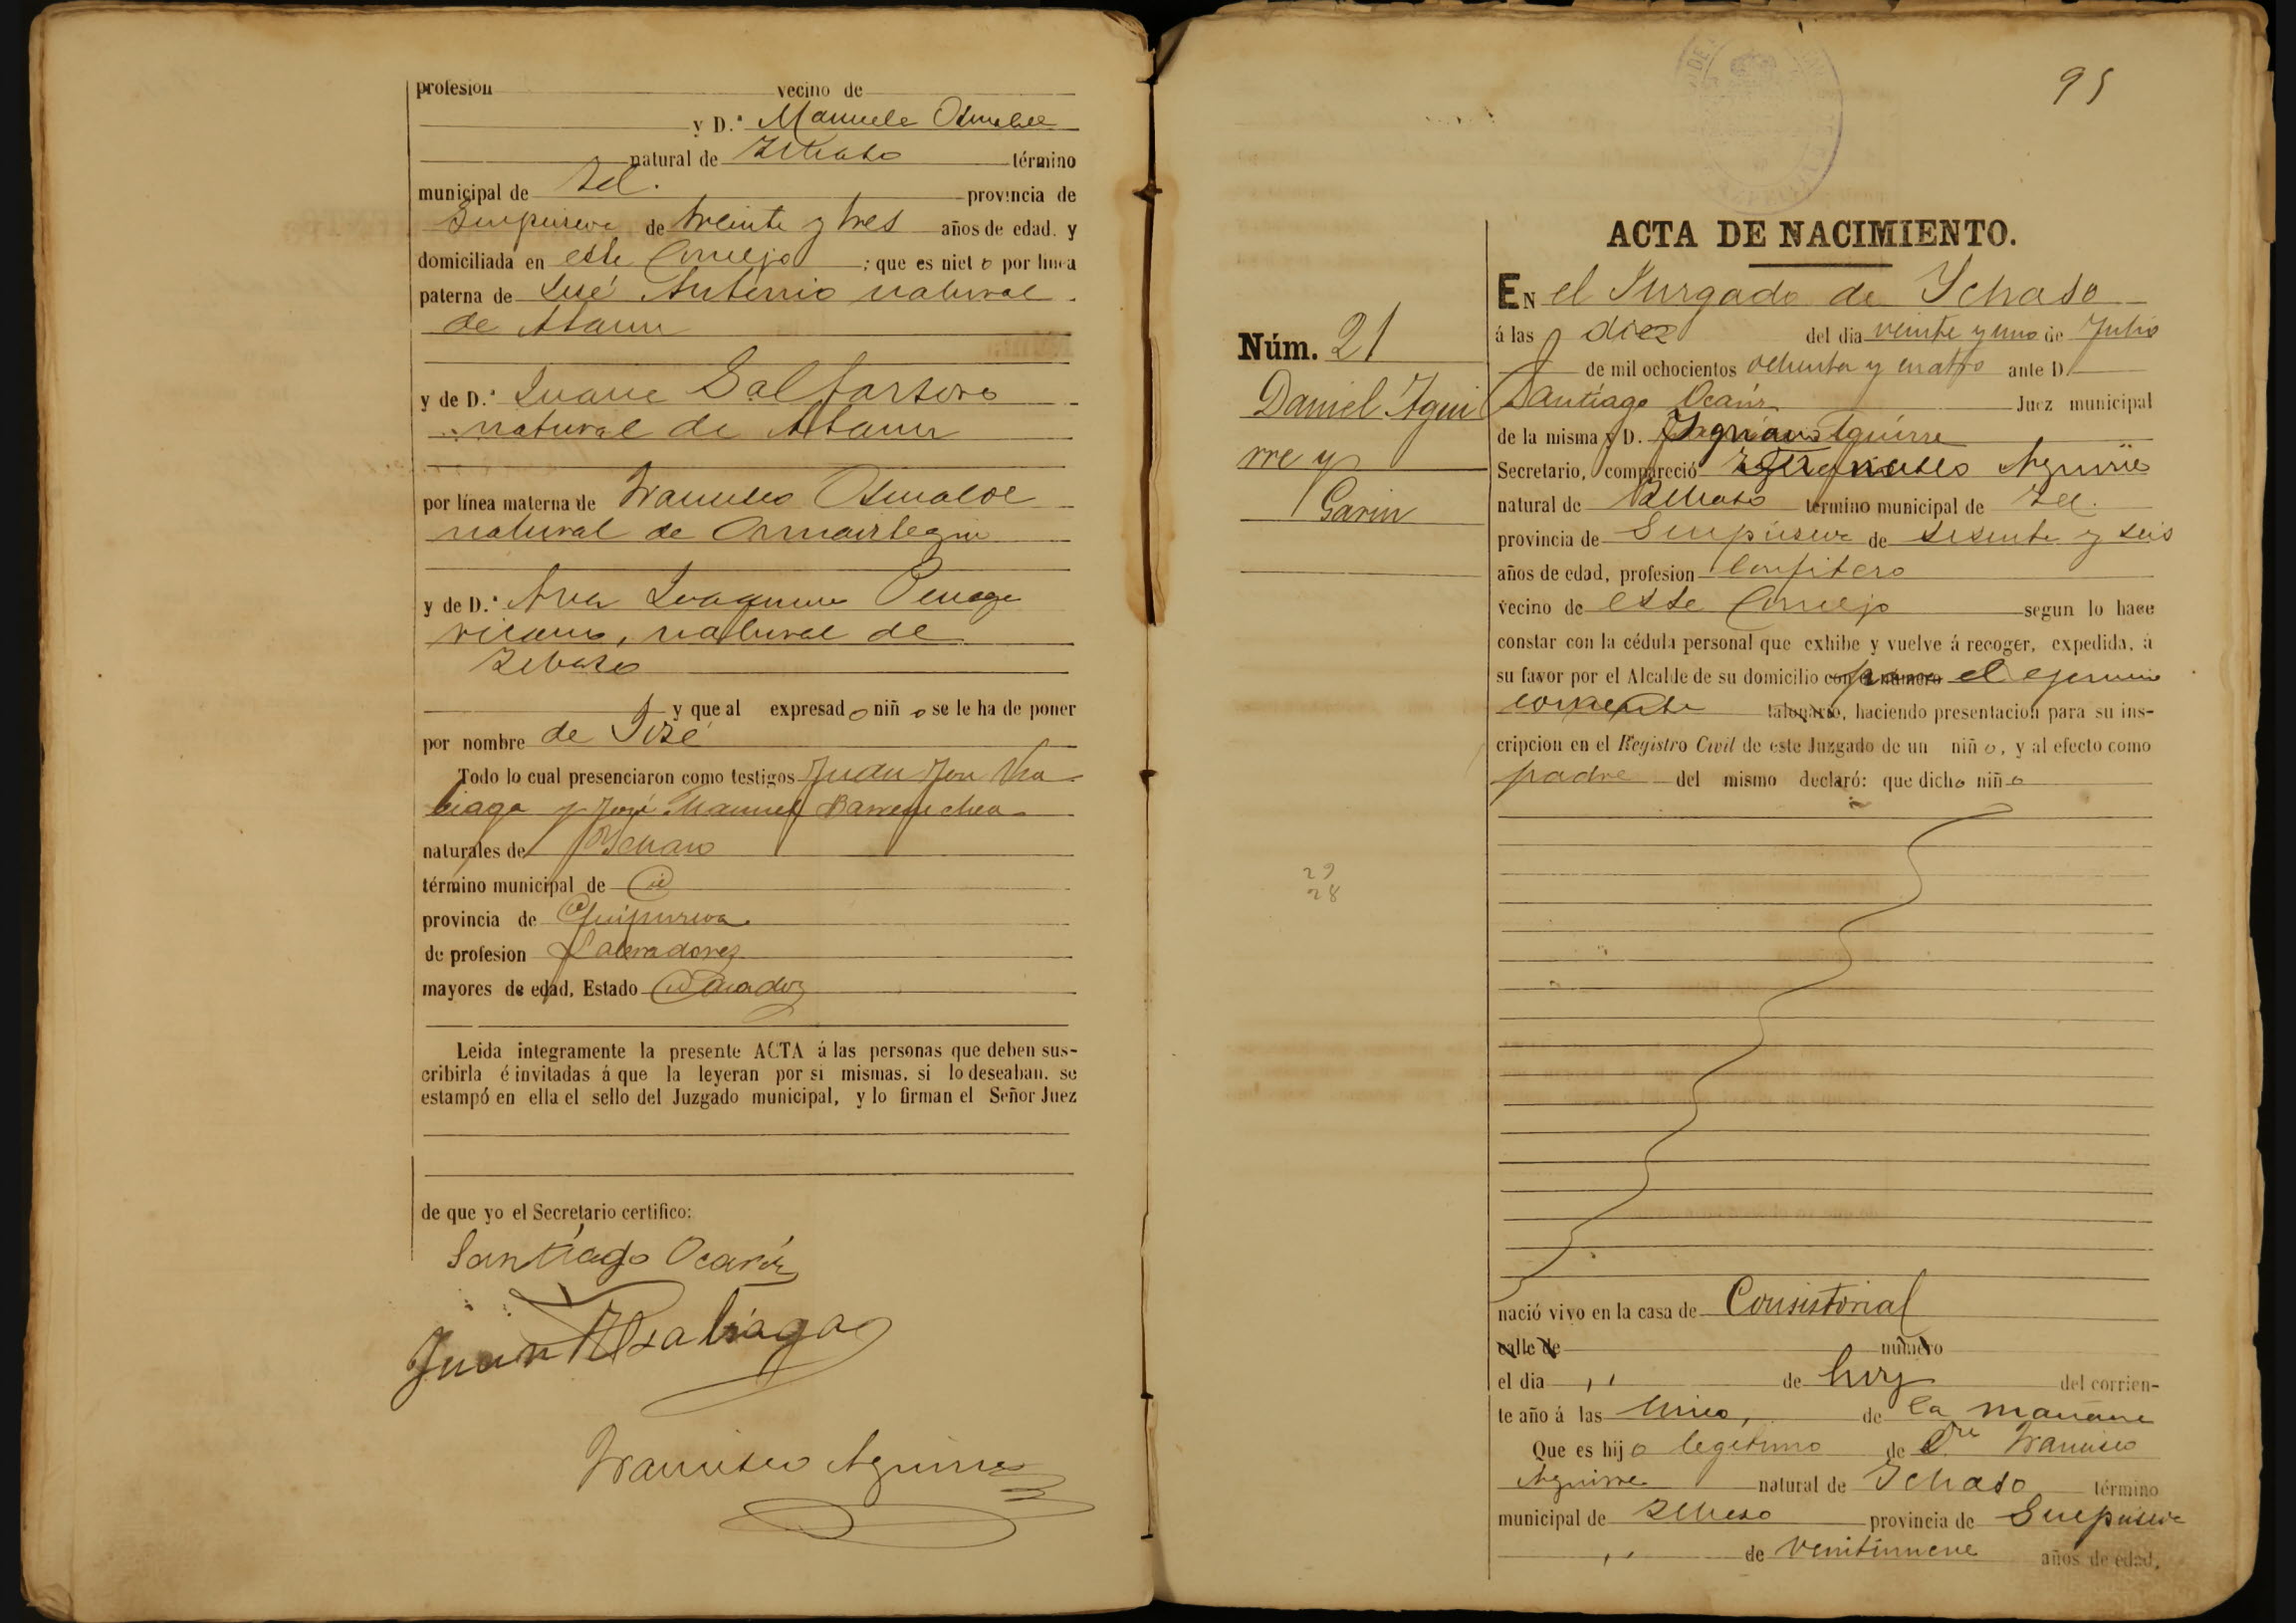 profesion vecino de
y D.ª Manuela
natural de Ichaso término
municipal de Id. provincia de
Guipuzcoa de treinta y tres años de edad. y
domiciliada en este Concejo ; que es niet o por línea
paterna de José Antonio natural
de Ataun
y de D.ª Juana
natural de Ataun
por línea materna de Francisco
natural de
y de D.ª Ana Joaquina
natural de
Ichaso
y que al expresad o niñ o se le ha de poner
por nombre de José
Todo lo cual presenciaron como testigos Juan José
y José Manuel Barrenechea
naturales de Ichaso
término municipal de id
provincia de Guipuzcoa
de profesion Labradores
mayores de edad, Estado Casados
Leida integramente la presente ACTA á las personas que deben sus-
cribirla é invitadas á que la leyeran por si mismas, si lo deseaban. se
estampó en ella el sello del Juzgado municipal, y lo firman el Señor Juez
de que yo el Secretario certifico:
Santiago Ocariz
Juan
Francisco Aguirre
95
ACTA DE NACIMIENTO.
Núm. 21
Daniel Agui
rre y
Garin
EN el Juzgado de Ychaso
á las diez del dia veinte y uno de Julio
de mil ochocientos ochenta y cuatro ante D.
Santiago Ocariz Juez municipal
de la misma y D. Ignacio Aguirre
Secretario, compareció Aguirre
natural de Ichaso término municipal de Id.
provincia de Guipúzcoa de sesenta y seis
años de edad, profesion Confitero
vecino de este Concejo segun lo hace
constar con la cédula personal que exhibe y vuelve á recoger, expedida, á
su favor por el Alcalde de su domicilio con el número para el ejercicio
corriente talonario, haciendo presentacion para su ins-
cripcion en el Registro Civil de este Juzgado de un niñ o, y al efecto como
padre del mismo declaró: que dicho niñ o
29
28
nació vivo en la casa de Consistorial
calle de número
el dia ,, de hoy del corrien-
te año á las cinco, de la mañana
Que es hij o legitimo de Dn Francisco
Aguirre natural de Ichaso término
municipal de Ichaso provincia de Guipúzcoa
,, de veintinueve años de edad,